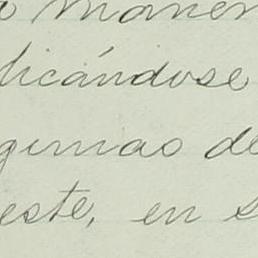 a maner
licándose
ginas de
este, en s